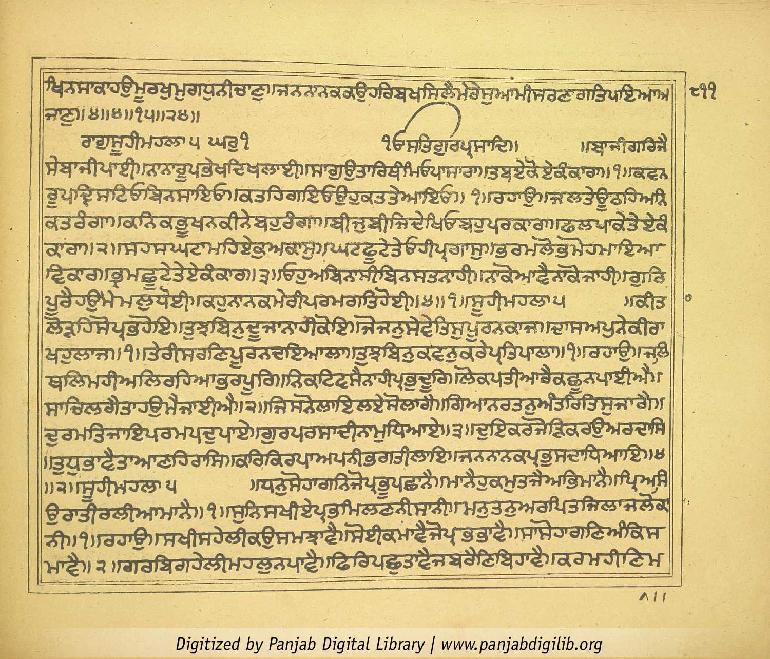 ਖਿਨਸਾਕਾਹਉਮੂਰਖੁਮੁਗਧੁਨੀਚਾਣੁ॥ਜਨਨਾਨਕਕਉਹਰਿਬਖਸਿਲੈਮੇਰੇਸੁਆਮੀਸਰਣਾਗਤਿਪਇਆਅ ੮੧੧
ਜਾਣੁ॥੪॥੪॥੧੫॥੨੪॥
ਰਾਗੁਸੂਹੀਮਹਲਾ੫ ਘਰੁ੧ ੴਸਤਿਗੁਰਪ੍ਰਸਾਦਿ॥ ॥ਬਾਜੀਗਰਿਜੈ
ਸੇਬਾਜੀਪਾਈ॥ਨਾਨਾਰੂਪਭੇਖਦਿਖਲਾਈ॥ਸਾਗੁਉਤਾਰਿਥੰਮਿਓਪਾਸਾਰਾ॥ਤਬਏਕੋਏਕੰਕਾਰਾ॥੧॥ਕਵਨ
ਰੂਪਦ੍ਰਿਸਟਿਓਬਿਨਸਾਇਓ॥ਕਤਹਿਗਇਓਉਹੁਕਤਤੇਆਇਓ॥੧॥ਰਹਾਉ॥ਜਲਤੇਊਠਹਿਅਨਿ
ਕਤਰੰਗਾ॥ਕਨਿਕਭੂਖਨਕੀਨੇਬਹੁਰੰਗਾ॥ਬੀਜੁਬੀਜਿਦੇਖਿਓਬਹੁਪਰਕਾਰਾ॥ਫਲਪਾਕੇਤੇਏਕੰ
ਕਾਰਾ॥੨॥ਸਹਸਘਟਾਮਹਿਏਕੁਅਕਾਸੁ॥ਘਟਫੂਟੇਤੇਓਹੀਪ੍ਰਗਾਸੁ॥ਭਰਮਲੋਭਮੋਹਮਾਇਆ
ਵਿਕਾਰ॥ਭ੍ਰਮਛੂਟੇਤੇਏਕੰਕਾਰ॥੩॥ਓਹੁਅਬਿਨਾਸੀਬਿਨਸਤਨਾਹੀ॥ਨਾਕੋਆਵੈਨਾਕੋਜਾਹੀ॥ਗੁਰਿ
ਪੂਰੈਹਉਮੈਮਲੁਧੋਈ॥ਕਹੁਨਾਨਕਮੇਰੀਪਰਮਗਤਿਹੋਈ॥੪॥੧॥ਸੂਹੀਮਹਲਾ੫ ॥ਕੀਤਾ
ਲੋੜਹਿਸੋਪ੍ਰਭਹੋਇ॥ਤੁਝਬਿਨੁਦੂਜਾਨਾਹੀਕੋਇ॥ਜੋਜਨੁਸੇਵੇਤਿਸੁਪੂਰਨਕਾਜ॥ਦਾਸਅਪੁਨੇਕੀਰਾ
ਖਹੁਲਾਜ॥੧॥ਤੇਰੀਸਰਣਿਪੂਰਨਦਇਆਲਾ॥ਤੁਝਬਿਨੁਕਵਨੁਕਰੇਪ੍ਰਤਿਪਾਲਾ॥੧॥ਰਹਾਉ॥ਜਲਿ
ਥਲਿਮਹੀਅਲਿਰਹਿਆਭਰਪੂਰਿ॥ਨਿਕਟਿਵਸੈਨਾਹੀਪ੍ਰਭੁਦੂਰਿ॥ਲੋਕਪਤੀਆਰੈਕਛੂਨਪਾਈਐ॥
ਸਾਚਿਲਗੈਤਾਹਉਮੈਜਾਈਐ॥੨॥ਜਿਸਨੋਲਾਇਲਏਸੋਲਾਗੈ॥ਗਿਆਨਰਤਨੁਅੰਤਰਿਤਿਸੁਜਾਗੈ॥
ਦੁਰਮਤਿਜਾਇਪਰਮਪਦੁਪਾਏ॥ਗੁਰਪਰਸਾਦੀਨਾਮੁਧਿਆਏ॥੩॥ਦੁਇਕਰਜੋੜਿਕਰਉਅਰਦਾਸਿ
॥ਤੁਧੁਭਾਵੈਤਾਆਣਹਿਰਾਸਿ॥ਕਰਿਕਿਰਪਾਅਪਨੀਭਗਤੀਲਾਇ॥ਜਨਨਾਨਕਪ੍ਰਭੁਸਦਾਧਿਆਇ॥੪
॥੨॥ਸੂਹੀਮਹਲਾ੫ ॥ਧਨੁਸੋਹਾਗਨਿਜੋਪ੍ਰਭੂਪਛਾਨੈ॥ਮਾਨੈਹੁਕਮੁਤਜੈਅਭਿਮਾਨੈ॥ਪ੍ਰਿਅਸਿ
ਉਰਾਤੀਰਲੀਆਮਾਨੈ॥੧॥ਸੁਨਿਸਖੀਏਪ੍ਰਭਮਿਲਣਨੀਸਾਨੀ॥ਮਨੁਤਨੁਅਰਪਿਤਜਿਲਾਜਲੋਕਾ
ਨੀ॥੧॥ਰਹਾਉ॥ਸਖੀਸਹੇਲੀਕਉਸਮਝਾਵੈ॥ਸੋਈਕਮਾਵੈਜੋਪ੍ਰਭਭਾਵੈ॥ਸਾਸੋਹਾਗਣਿਅੰਕਿਸ
ਮਾਵੈ॥੨॥ਗਰਬਿਗਹੇਲੀਮਹਲੁਨਪਾਵੈ॥ਫਿਰਿਪਛੁਤਾਵੈਜਬਰੈਣਿਬਿਹਾਵੈ॥ਕਰਮਹੀਣਿਮ
Digitized by Panjab Digital Library | www.panjabdigilib.org